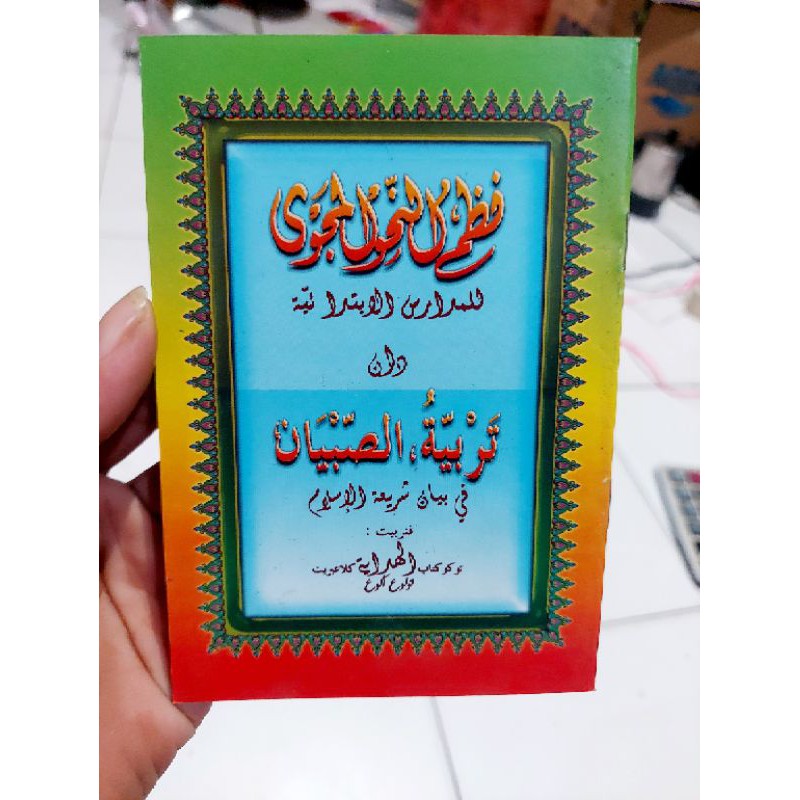 نظم النّحو الجَوٰى
للمدارس الابتدائيّة
دان
تَرْبِيَّةُ الصِّبْيَان
في بيان شريعة الإسلام
فنربيت :
توكو كتاب الهداية كلاعبريت